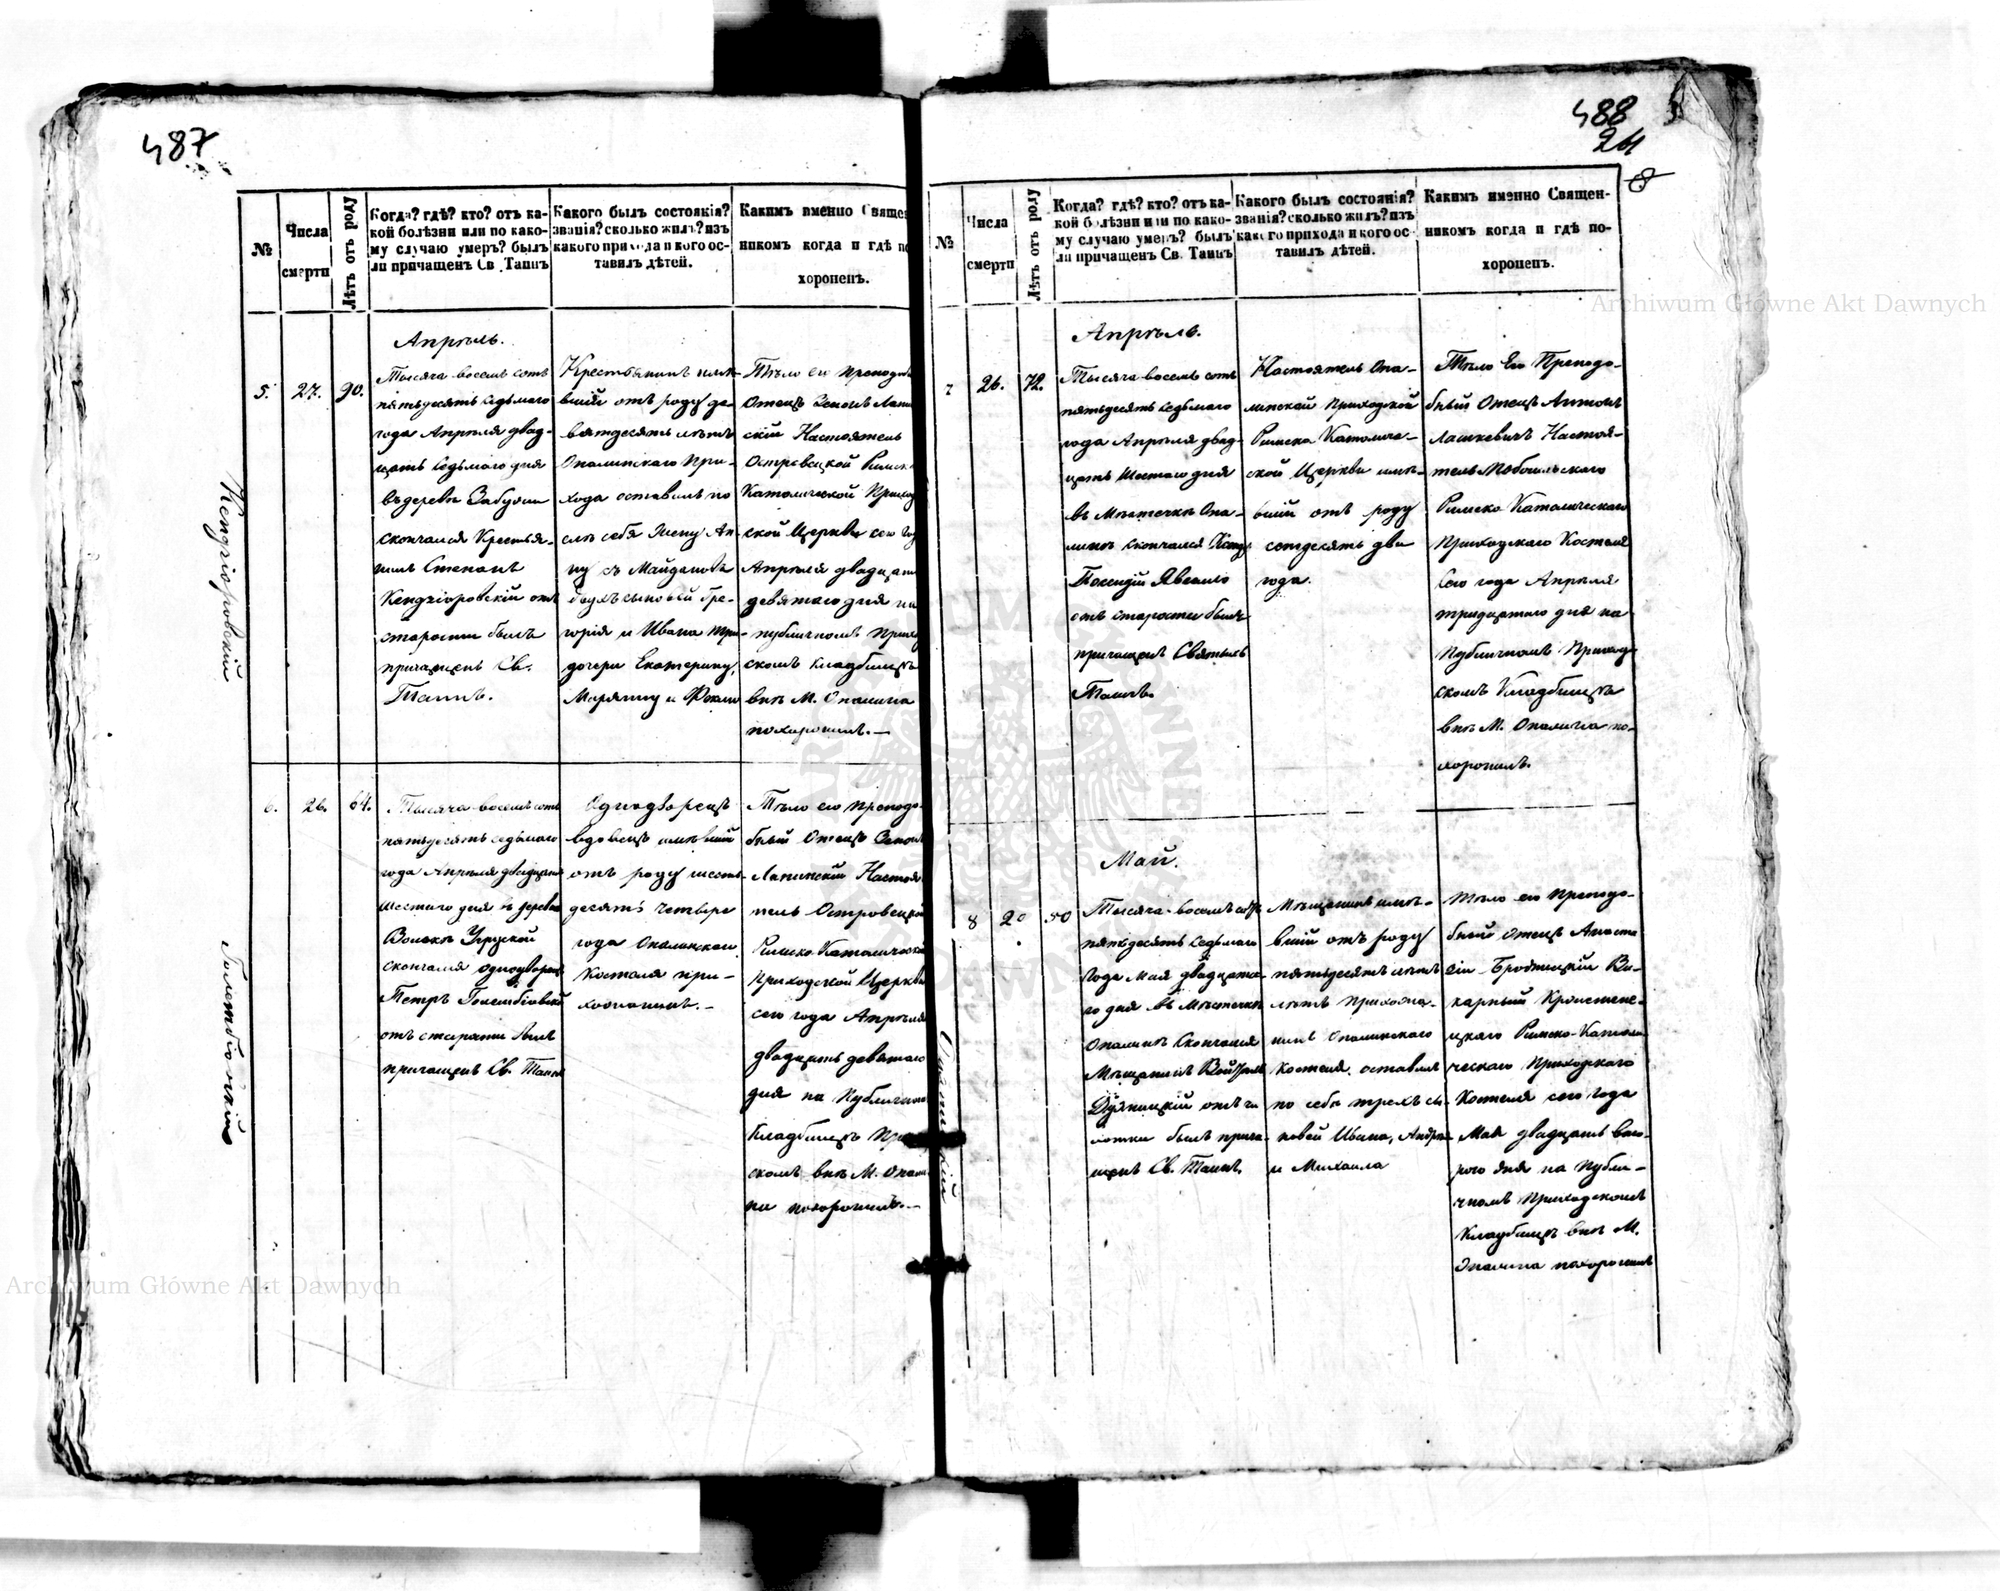 487
№
Числа смерти
Лѣтъ отъ роду
Когда? гдѣ? кто? отъ ка-
кой болѣзни или по како-
му случаю умеръ? былъ
ли причащенъ Св. Таинъ
Какого былъ состоянія?
званія? сколько жилъ? изъ
какого прихода и кого ос-
тавилъ дѣтей.
Какимъ именно Священ
никомъ когда и гдѣ по
хороненъ.
5.
27.
90.
Апрѣль.
Тысяча восемь сотъ
пятьдесятъ седьмаго
года Апрѣля двад-
цать седьмаго дня
въ деревнѣ
скончался Крестья-
нинъ Степанъ
Кендзіоровскій отъ
старости былъ
причащенъ Св.
Таинъ.
Крестьянинъ имѣ-
вшій отъ роду де-
вятдесятъ лѣтъ
Опалинскаго При-
хода оставилъ по
слѣ себя Жену Ан-
ну съ
двухъ сыновей Гре-
горія и Ивана три
дочери Екатерину,
Маріанну и
Тѣло его преподо
Отецъ Зенонъ
скій Настоятель
Островецкой Римск
Католической Приход
ской Церкви сего год
Апрѣля двадцать
девятаго дня на
публичномъ Прихо
скомъ кладбищѣ
внѣ М. Опалина
похоронилъ.—
Кендзіоровскій
6.
26.
64.
Тысяча восемь сотъ
пятьдесятъ седьмаго
года Апрѣля двадцать
шестаго дня въ деревнѣ
Волькѣ Угрузкой
скончался однодворецъ
Петръ Голембіовскій
отъ старости былъ
причащенъ Св. Таинъ
Однодворецъ
вдовецъ имѣвшій
отъ роду шесть-
десятъ четыре
года Опалинскаго
Костела при-
хожанинъ.—
Тѣло его преподо
бный Отецъ Зенонъ
Настоя
тель Островецкой
Римско Католической
Приходской Церкви
сего года Апрѣля
двадцать девятаго
дня на Публичномъ
Кладбищѣ При
скомъ внѣ М. Опали
на похоронилъ.—
Голембіовскій
488
24
8
№
Числа смерти
Лѣтъ отъ роду
Когда? гдѣ? кто? отъ ка-
кой болѣзни или по како-
му случаю умеръ? былъ
ли причащенъ Св. Таинъ
Какого былъ состоянія?
званія? сколько жилъ? изъ
какого прихода и кого ос-
тавилъ дѣтей.
Какимъ именно Священ-
никомъ когда и гдѣ по-
хороненъ.
7
26.
72.
Апрѣль.
Тысяча восемь сотъ
пятьдесятъ седьмаго
года Апрѣля двад-
цать Шестаго дня
въ Мѣстечкѣ Опа-
линѣ скончался
отъ старости былъ
причащенъ Святыхъ
Таинъ.
Настоятель Опа-
линской Приходской
Римско Католиче-
ской Церкви имѣ-
вшій отъ роду
семдесятъ два
года.
Тѣло Его Преподо-
бный Отецъ Антонъ
Лашкевичъ Настоя-
тель
Римско Католическаго
Приходскаго Костела
Сего года Апрѣля
тридцатаго дня на
Публичномъ Приход-
скомъ Кладбищѣ
внѣ М. Опалина по-
хоронилъ.
8
20
50
Май.
Тысяча восемь сотъ
пятьдесятъ седьмаго
года Мая двадцата-
го дня въ Мѣстечкѣ
Опалинѣ Скончался
Мѣщанинъ
былъ прича-
щенъ Св. Таинъ.
Мѣщанинъ имѣ-
вшій отъ роду
пятьдесятъ лѣтъ
прихожа-
нинъ Опалинскаго
Костела. оставилъ
по себѣ трехъ сы-
новей Ивана, Андрея
и Михаила
Тѣло его преподо-
бный Отецъ
Ви-
карный
Римско-Католи
ческаго Приходскаго
Костела сего года
Мая двадцать вто-
рого дня на Публи-
чномъ Приходскомъ
Кладбищѣ внѣ М.
Опалина похоронилъ
Archiwum Główne Akt Dawnych
Archiwum Główne Akt Dawnych